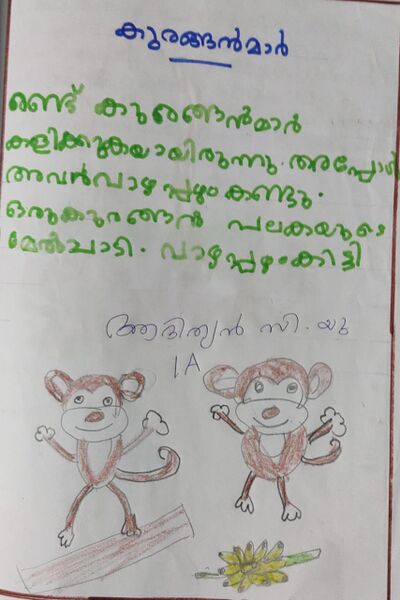 കുരങ്ങൻമാർ
രണ്ട് കുരങ്ങൻമാർ
കളിക്കുകയായിരുന്നു. അപ്പോൾ
അവൻവാഴപ്പഴംകണ്ടു.
ഒരുകുരങ്ങാൻ പലകയുടെ
മേൽചാടി. വാഴപ്പഴംകിട്ടി
ആദിത്യൻ സി. യു
1A